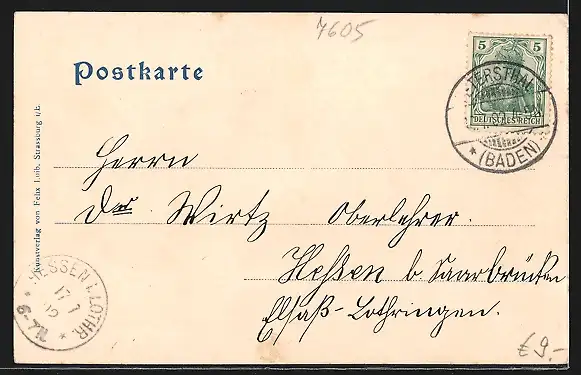 7605
Postkarte
5 5
DEUTSCHES REICH
*(BADEN)
Herrn
Wirtz Oberlehrer.
Hessen b. Saarbrücken
Elsaß-Lothringen.
Kunstverlag von Felix Luib, Strassburg i/E.
HESSEN i. LOTHR.
17 7
02
6-7N.
€ 9.-